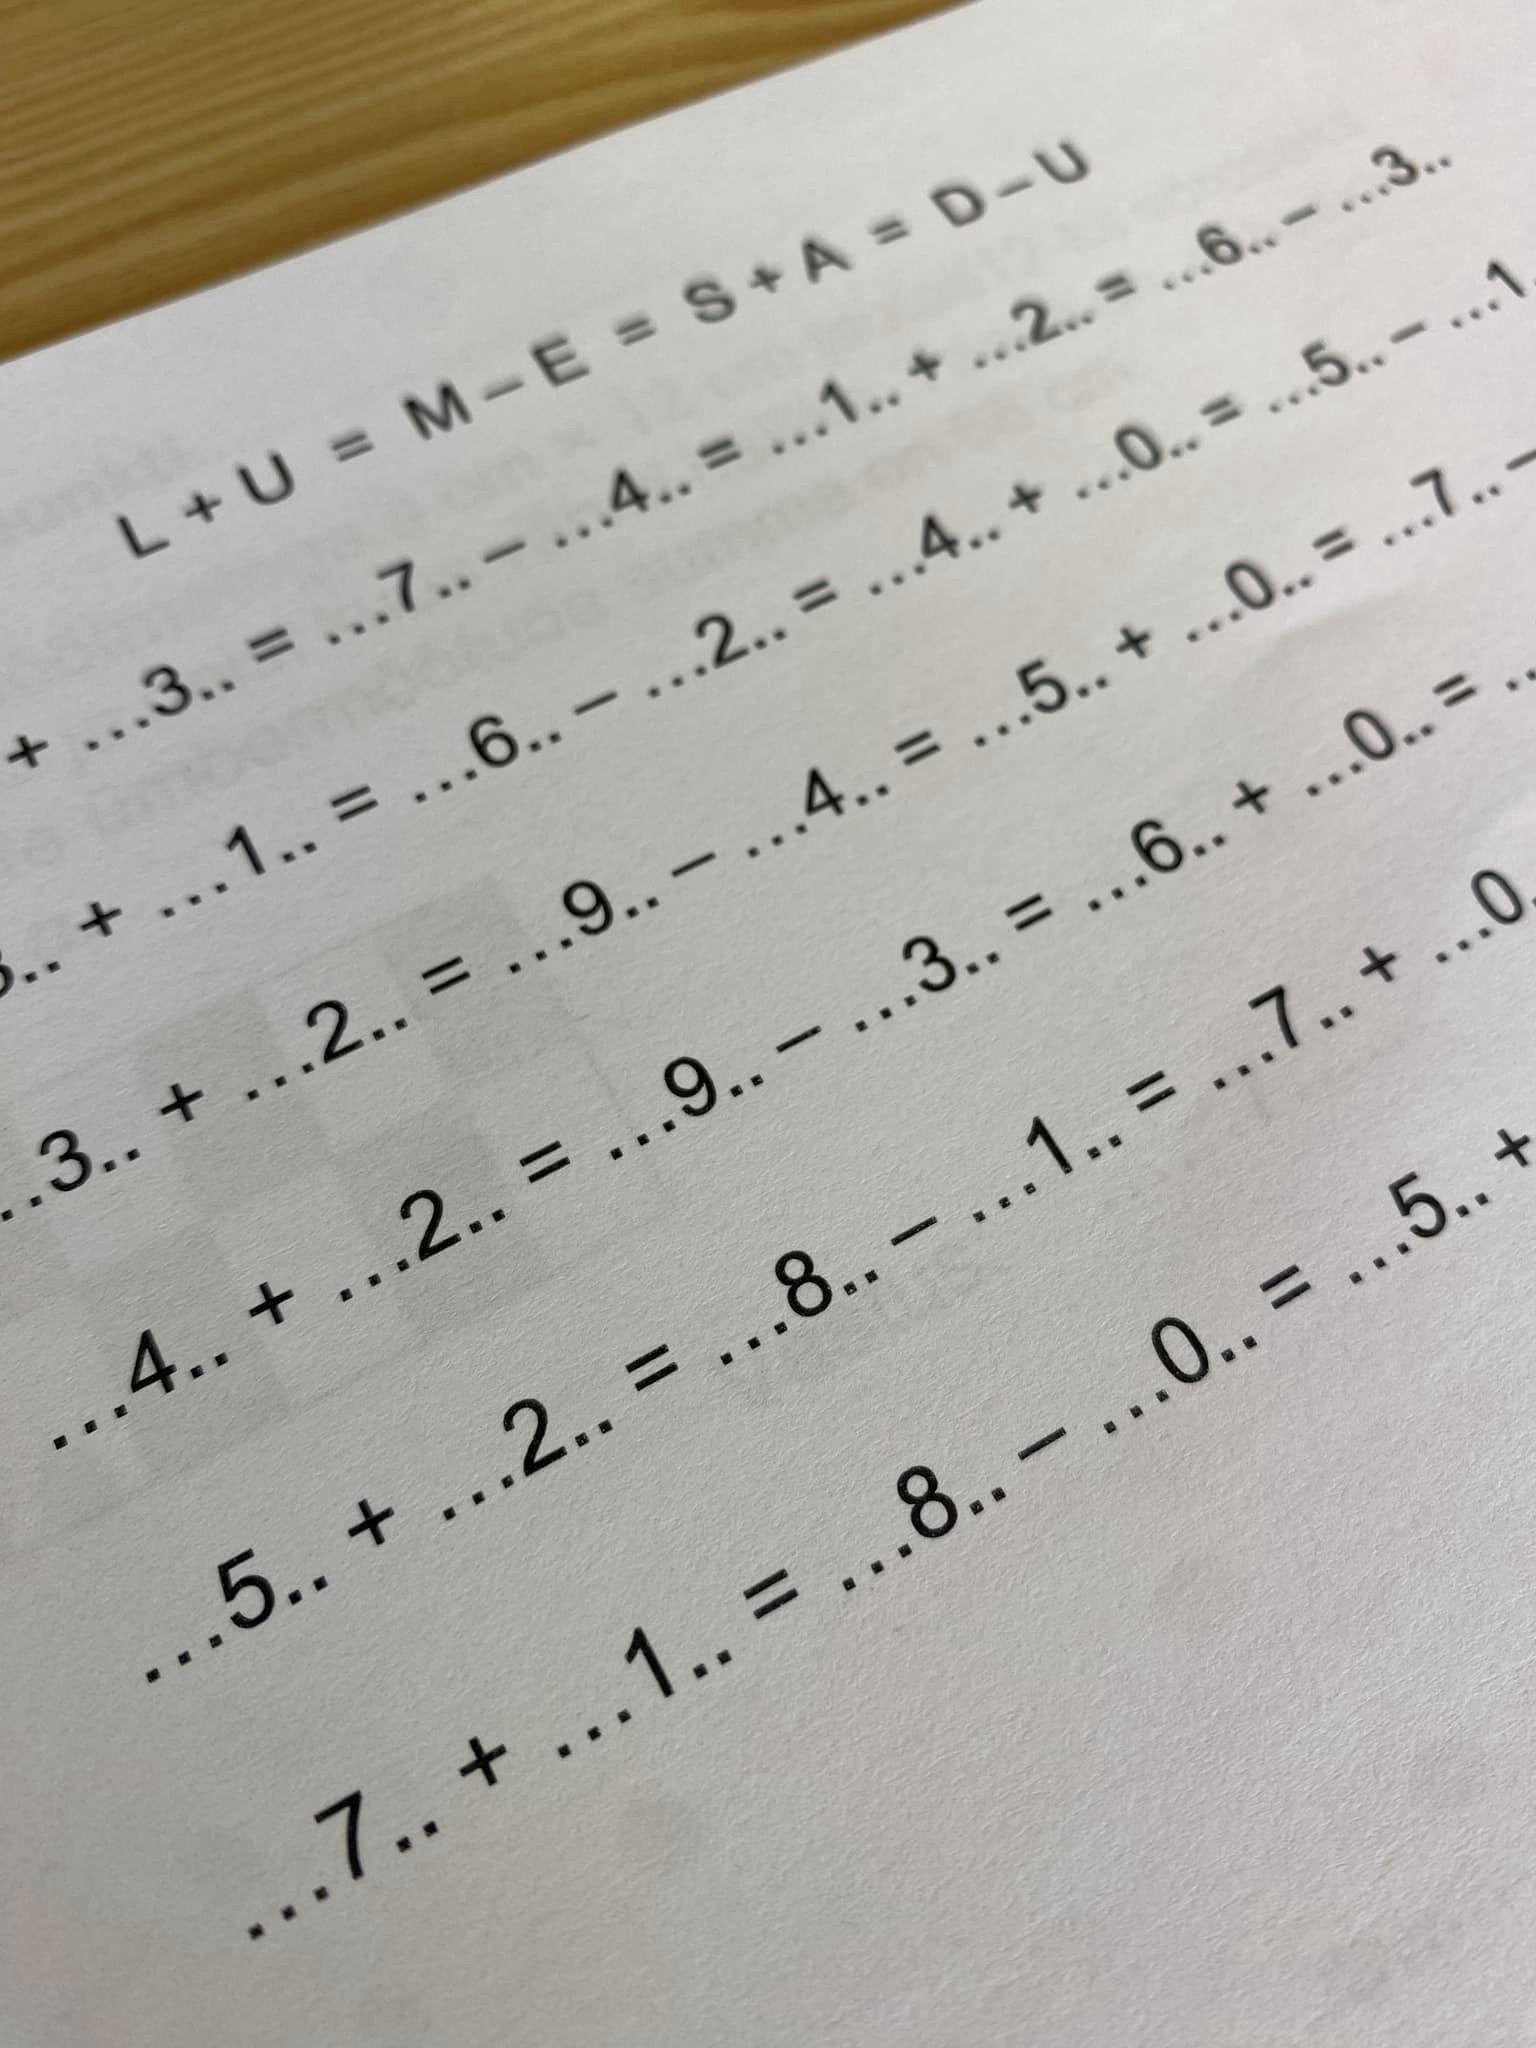 L + U = M – E = S + A = D – U
+ ...3.. = ...7.. – ...4.. = ...1.. + ...2.. = ...6.. – ...3..
3.. + ...1.. = ...6.. – ...2.. = ...4.. + ...0.. = ...5.. – ...1.
..3.. + ...2.. = ...9.. – ...4.. = ...5.. + ...0.. = ...7.. –
...4.. + ...2.. = ...9.. – ...3.. = ...6.. + ...0.. = ..
...5.. + ...2.. = ...8.. – ...1.. = ...7.. + ...0.
...7.. + ...1.. = ...8.. – ...0.. = ...5.. +